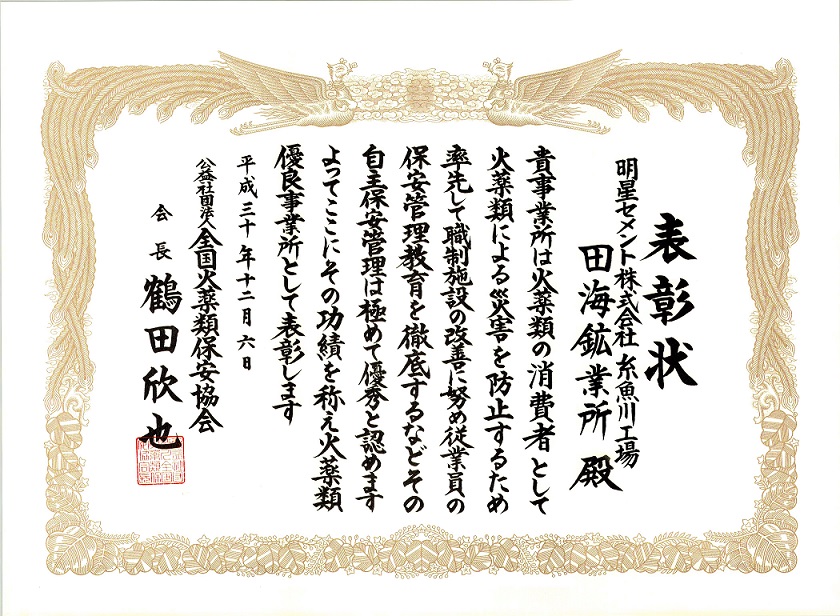 表彰状
明星セメント株式会社 糸魚川工場
田海鉱業所 殿
貴事業所は火薬類の消費者として
火薬類による災害を防止するため
率先して職制施設の改善に努め従業員の
保安管理教育を徹底するなどその
自主保安管理は極めて優秀と認めます
よってここにその功績を称え火薬類
優良事業所として表彰します
平成三十年十二月六日
公益社団法人全国火薬類保安協会
会長 鶴田欣也